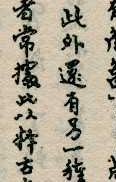 此外還有另一種
者常據此以釋古